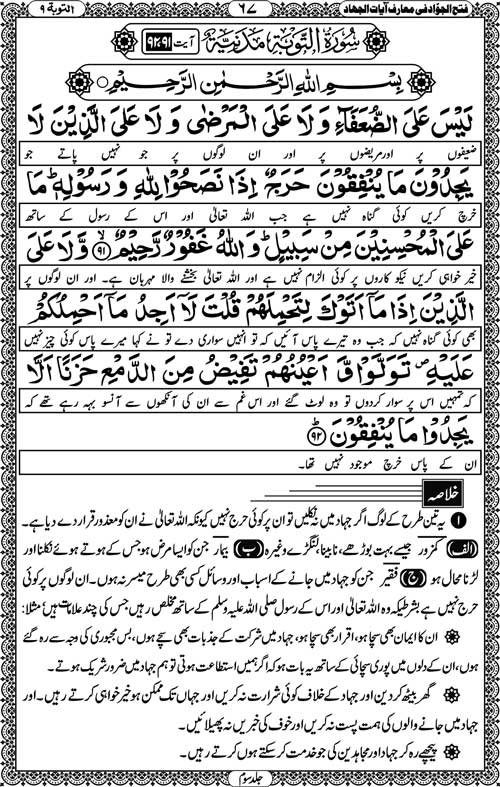 فتح الجوّاد فی معارف آیات الجهاد ۶۷ التوبة ۹
سُوْرَةُ التَّوْبَةِ مَدَنِيَّةٌ آیت ۹۱، ۹۲
بِسْمِ اللهِ الرَّحْمٰنِ الرَّحِيْمِ
لَيْسَ عَلَى الضُّعَفَآءِ وَلَا عَلَى الْمَرْضٰى وَلَا عَلَى الَّذِيْنَ لَا
ضعیفوں پر اور مریضوں پر اور ان لوگوں پر جو نہیں پاتے جو
يَجِدُوْنَ مَا يُنْفِقُوْنَ حَرَجٌ اِذَا نَصَحُوْا لِلّٰهِ وَرَسُوْلِهٖ ؕ مَا
خرچ کریں کوئی گناہ نہیں ہے جب اللہ تعالیٰ اور اس کے رسول کے ساتھ
عَلَى الْمُحْسِنِيْنَ مِنْ سَبِيْلٍ ؕ وَاللّٰهُ غَفُوْرٌ رَّحِيْمٌ ۙ﴿۹۱﴾ وَّلَا عَلَى
خیر خواہی کریں نیکو کاروں پر کوئی الزام نہیں ہے اور اللہ تعالیٰ بخشنے والا مہربان ہے۔ اور ان لوگوں پر
الَّذِيْنَ اِذَا مَاۤ اَتَوْكَ لِتَحْمِلَهُمْ قُلْتَ لَاۤ اَجِدُ مَاۤ اَحْمِلُكُمْ
بھی کوئی گناہ نہیں کہ جب وہ تیرے پاس آئیں کہ تو انہیں سواری دے تو نے کہا میرے پاس کوئی چیز نہیں
عَلَيْهِ ۪ تَوَلَّوْا وَّاَعْيُنُهُمْ تَفِيْضُ مِنَ الدَّمْعِ حَزَنًا اَلَّا
کہ تمہیں اس پر سوار کردوں تو وہ لوٹ گئے اور اس غم سے ان کی آنکھوں سے آنسو بہہ رہے تھے کہ
يَجِدُوْا مَا يُنْفِقُوْنَ ؕ﴿۹۲﴾
ان کے پاس خرچ موجود نہیں تھا۔
خلاصہ
۱ یہ تین طرح کے لوگ اگر جہاد میں نہ نکلیں تو ان پر کوئی حرج نہیں کیونکہ اللہ تعالیٰ نے ان کو معذور قرار دے دیا ہے۔
(الف) کمزور جیسے بہت بوڑھے، نابینا، لنگڑے وغیرہ (ب) بیمار جن کو ایسا مرض ہو جس کے ہوتے ہوئے نکلنا اور
لڑنا محال ہو (ج) فقیر جن کو جہاد میں جانے کے اسباب اور وسائل کسی بھی طرح میسر نہ ہوں۔ ان لوگوں پر کوئی
حرج نہیں ہے بشرطیکہ وہ اللہ تعالیٰ اور اس کے رسول صلی اللہ علیہ وسلم کے ساتھ مخلص رہیں جس کی چند علامات ہیں مثلا:
ان کا ایمان بھی سچا ہو، اقرار بھی سچا ہو، جہاد میں شرکت کے جذبات بھی سچے ہوں، بس مجبوری کی وجہ سے رہ گئے
ہوں، ان کے دلوں میں پوری سچائی کے ساتھ یہ بات ہو کہ اگر ہمیں استطاعت ہوتی تو ہم جہاد میں ضرور شریک ہوتے۔
گھر بیٹھ کر دین اور جہاد کے خلاف کوئی شرارت نہ کریں اور جہاں تک ممکن ہو خیر خواہی کرتے رہیں۔ اور
جہاد میں جانے والوں کی ہمت پست نہ کریں اور خوف کی خبریں نہ پھیلائیں۔
پیچھے رہ کر جہاد اور مجاہدین کی جو خدمت کرسکتے ہوں کرتے رہیں۔
جلد سوم